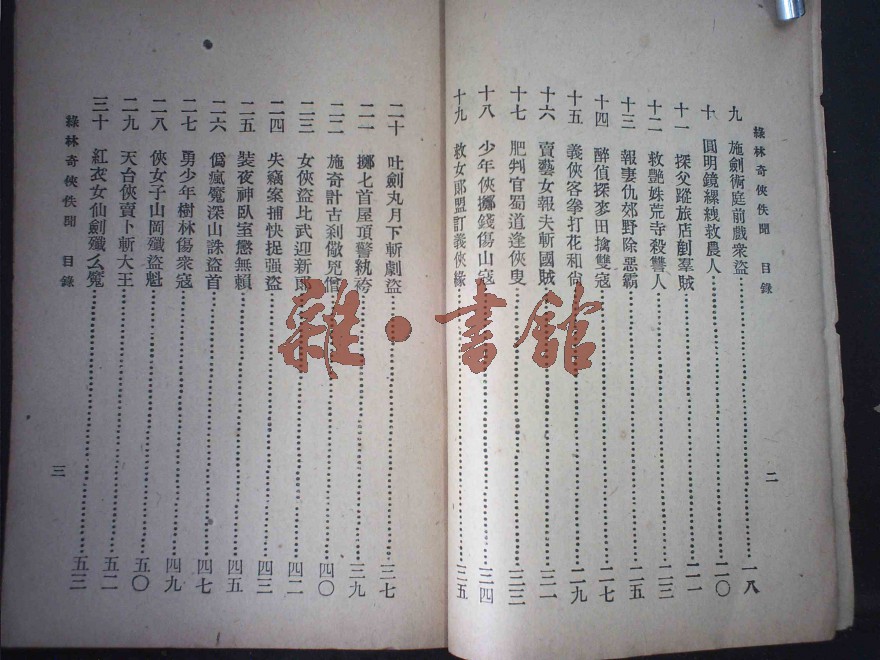 綠林奇俠佚聞 目錄
九 施劍術庭前戲衆盜 一八
十 圓明鏡縲絏救農人 二〇
十一 探父蹤旅店劏羣賊 二一
十二 救艷姝荒寺殺讐人 二三
十三 報妻仇郊野除惡霸 二五
十四 醉偵探麥田擒雙寇 二七
十五 義俠客拳打花和尙 二九
十六 賣藝女報夫斬國賊 三一
十七 肥判官蜀道逢俠叟 三三
十八 少年俠擲錢傷山寇 三四
十九 救女郞盟訂義俠緣 三五
二
二十 吐劍丸月下斬劇盜 三七
二一 擲匕首屋頂警紈袴 三九
二二 施奇計古刹儆兇僧 四〇
二三 女俠盜比武迎新郞 四二
二四 失竊案捕快捉强盜 四三
二五 裝夜神臥室懲無賴 四五
二六 僞瘋魔深山誅盜首 四七
二七 勇少年樹林傷衆寇 四九
二八 俠女子山岡殲盜魁 五〇
二九 天台俠賣卜斬大王 五二
三十 紅衣女仙劍殲么魔 五三
綠林奇俠佚聞 目錄
三
雜·書館